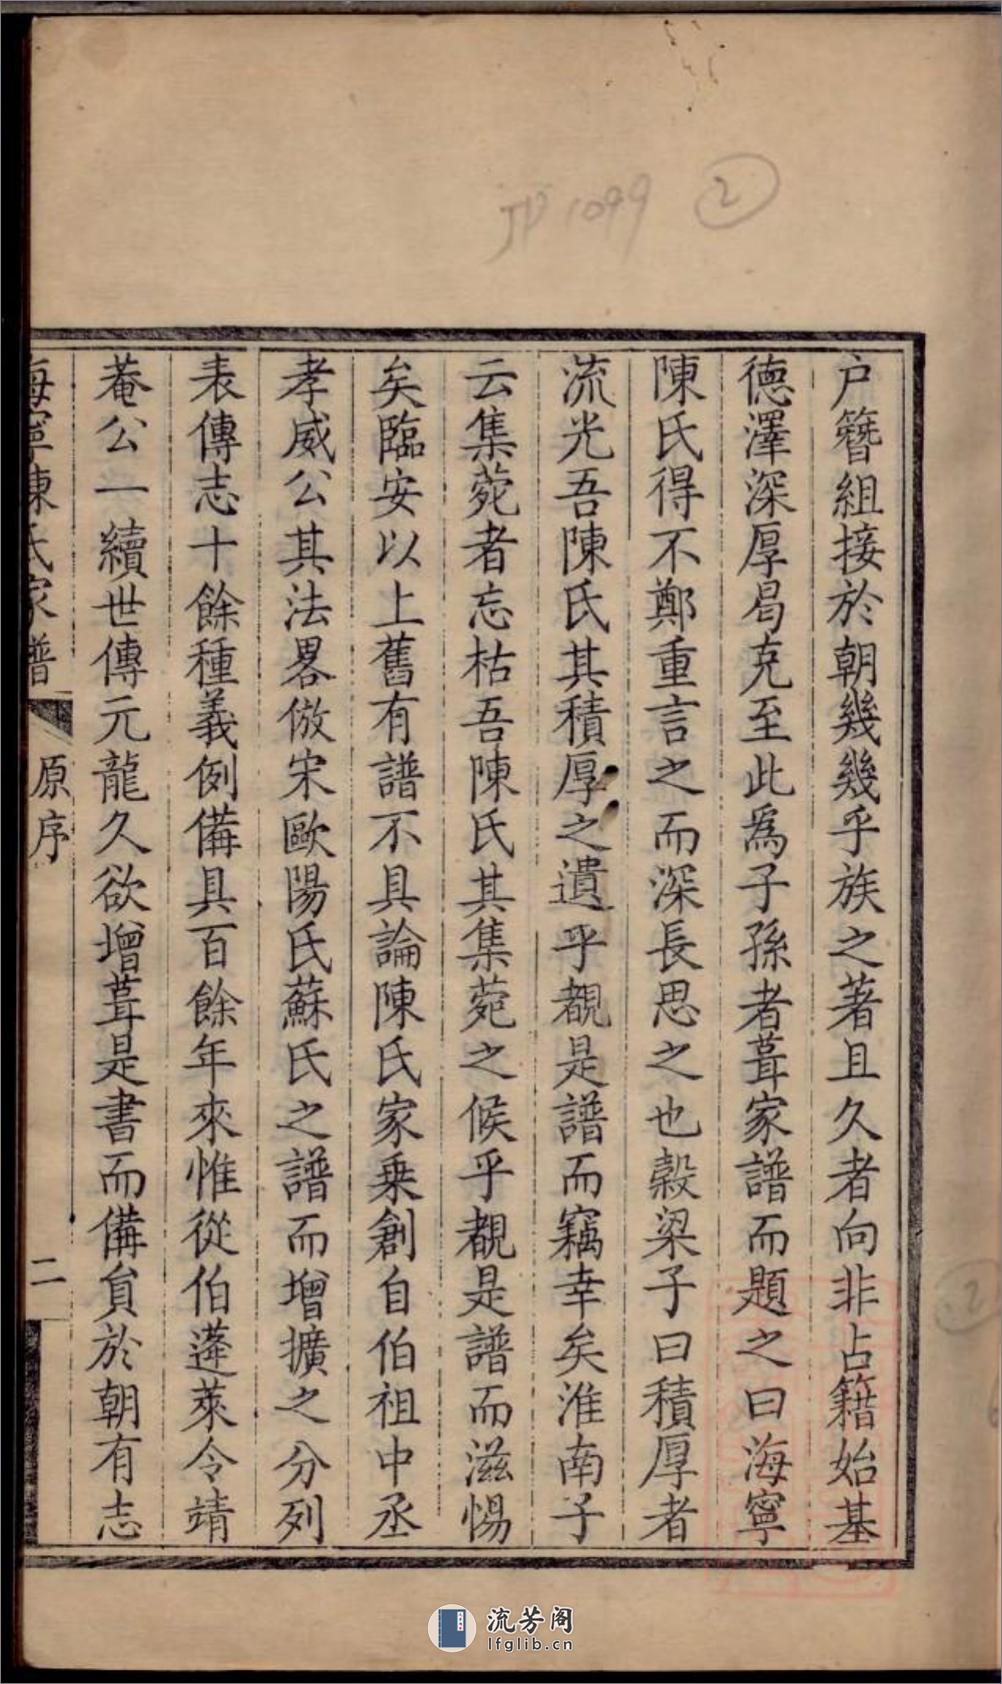 JP 1099 ②
户簪組接於朝幾幾乎族之著且久者向非占籍始基
德澤深厚曷克至此為子孫者葺家譜而題之曰海寧
陳氏得不鄭重言之而深長思之也穀梁子曰積厚者
流光吾陳氏其積厚之遺乎覩是譜而竊幸矣淮南子
云集菀者忘枯吾陳氏其集菀之候乎覩是譜而滋惕
矣臨安以上舊有譜不具論陳氏家乗創自伯祖中丞
孝威公其法畧倣宋歐陽氏蘇氏之譜而增擴之分列
表傳志十餘種義例備具百餘年來惟從伯蓬萊令靖
菴公一續世傳元龍久欲增葺是書而備負於朝有志
海寧陳氏家譜 原序 二
②
流芳阁
lfglib.cn